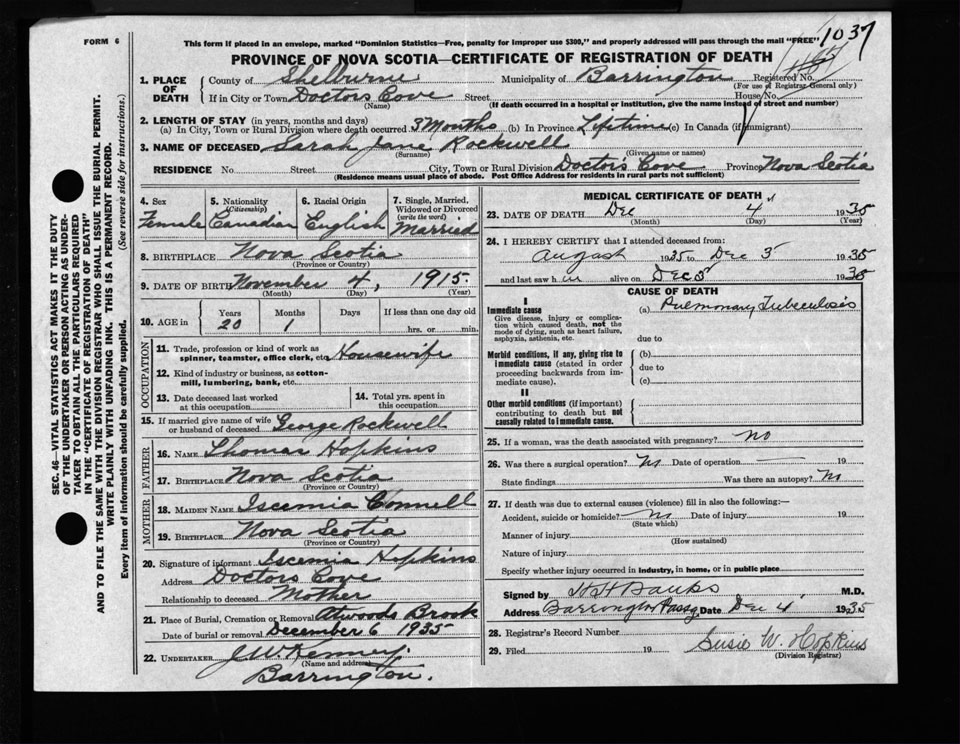 FORM 6
This form if placed in an envelope, marked "Dominion Statistics—Free, penalty for improper use $300," and properly addressed will pass through the mail "FREE"
1037
PROVINCE OF NOVA SCOTIA—CERTIFICATE OF REGISTRATION OF DEATH
1. PLACE OF DEATH
County of Shelburne Municipality of Barrington Registered No.
(For use of Registrar General only)
If in City or Town Doctors Cove Street House No.
(Name) (If death occurred in a hospital or institution, give the name instead of street and number)
2. LENGTH OF STAY (in years, months and days)
(a) In City, Town or Rural Division where death occurred 3 Months (b) In Province Lifetime (c) In Canada (if immigrant)
3. NAME OF DECEASED Sarah Jane Rockwell
(Surname) (Given name or names)
RESIDENCE No. Street City, Town or Rural Division Doctor's Cove Province Nova Scotia
(Residence means usual place of abode. Post Office Address for residents in rural parts not sufficient)
SEC. 46—VITAL STATISTICS ACT MAKES IT THE DUTY
OF THE UNDERTAKER OR PERSON ACTING AS UNDER-
TAKER TO OBTAIN ALL THE PARTICULARS REQUIRED
IN THE "CERTIFICATE OF REGISTRATION OF DEATH"
AND TO FILE THE SAME WITH THE DIVISION REGISTRAR WHO SHALL ISSUE THE BURIAL PERMIT.
WRITE PLAINLY WITH UNFADING INK. THIS IS A PERMANENT RECORD.
Every item of information should be carefully supplied. (See reverse side for instructions.)
4. Sex
Female
5. Nationality
(Citizenship)
Canadian
6. Racial Origin
English
7. Single, Married,
Widowed or Divorced
(write the word)
Married
8. BIRTHPLACE Nova Scotia
(Province or Country)
9. DATE OF BIRTH November 4, 1915
(Month) (Day) (Year)
10. AGE in
Years Months Days If less than one day old
20 1 hrs. or min.
OCCUPATION
11. Trade, profession or kind of work as
spinner, teamster, office clerk, etc. Housewife
12. Kind of industry or business, as cotton-
mill, lumbering, bank, etc.
13. Date deceased last worked
at this occupation
14. Total yrs. spent in
this occupation
15. If married give name of wife
or husband of deceased George Rockwell
FATHER
16. NAME Thomas Hopkins
17. BIRTHPLACE Nova Scotia
(Province or Country)
MOTHER
18. MAIDEN NAME Iscemia Connell
19. BIRTHPLACE Nova Scotia
(Province or Country)
20. Signature of informant Iscemia Hopkins
Address Doctors Cove
Relationship to deceased Mother
21. Place of Burial, Cremation or Removal Atwoods Brook
Date of burial or removal December 6 1935
22. UNDERTAKER J W Kenney
(Name and address)
Barrington.
MEDICAL CERTIFICATE OF DEATH
23. DATE OF DEATH Dec 4 1935
(Month) (Day) (Year)
24. I HEREBY CERTIFY that I attended deceased from:
August 1935 to Dec 3 1935
and last saw h alive on Dec 3 1935
CAUSE OF DEATH
I
Immediate cause
Give disease, injury or complica-
tion which caused death, not the
mode of dying, such as heart failure,
asphyxia, asthenia, etc.
(a) Pulmonary Tuberculosis
due to
Morbid conditions, if any, giving rise to
immediate cause (stated in order
proceeding backwards from im-
mediate cause).
(b)
due to
(c)
II
Other morbid conditions (if important)
contributing to death but not
causally related to immediate cause.
25. If a woman, was the death associated with pregnancy? no
26. Was there a surgical operation? No Date of operation 19
State findings Was there an autopsy? No
27. If death was due to external causes (violence) fill in also the following:—
Accident, suicide or homicide? no Date of injury 19
(State which)
Manner of injury
(How sustained)
Nature of injury
Specify whether injury occurred in industry, in home, or in public place
Signed by H H Banks M.D.
Address Barrington Passg Date Dec 4 1935
28. Registrar's Record Number
29. Filed 19 Susie W. Hopkins
(Division Registrar)